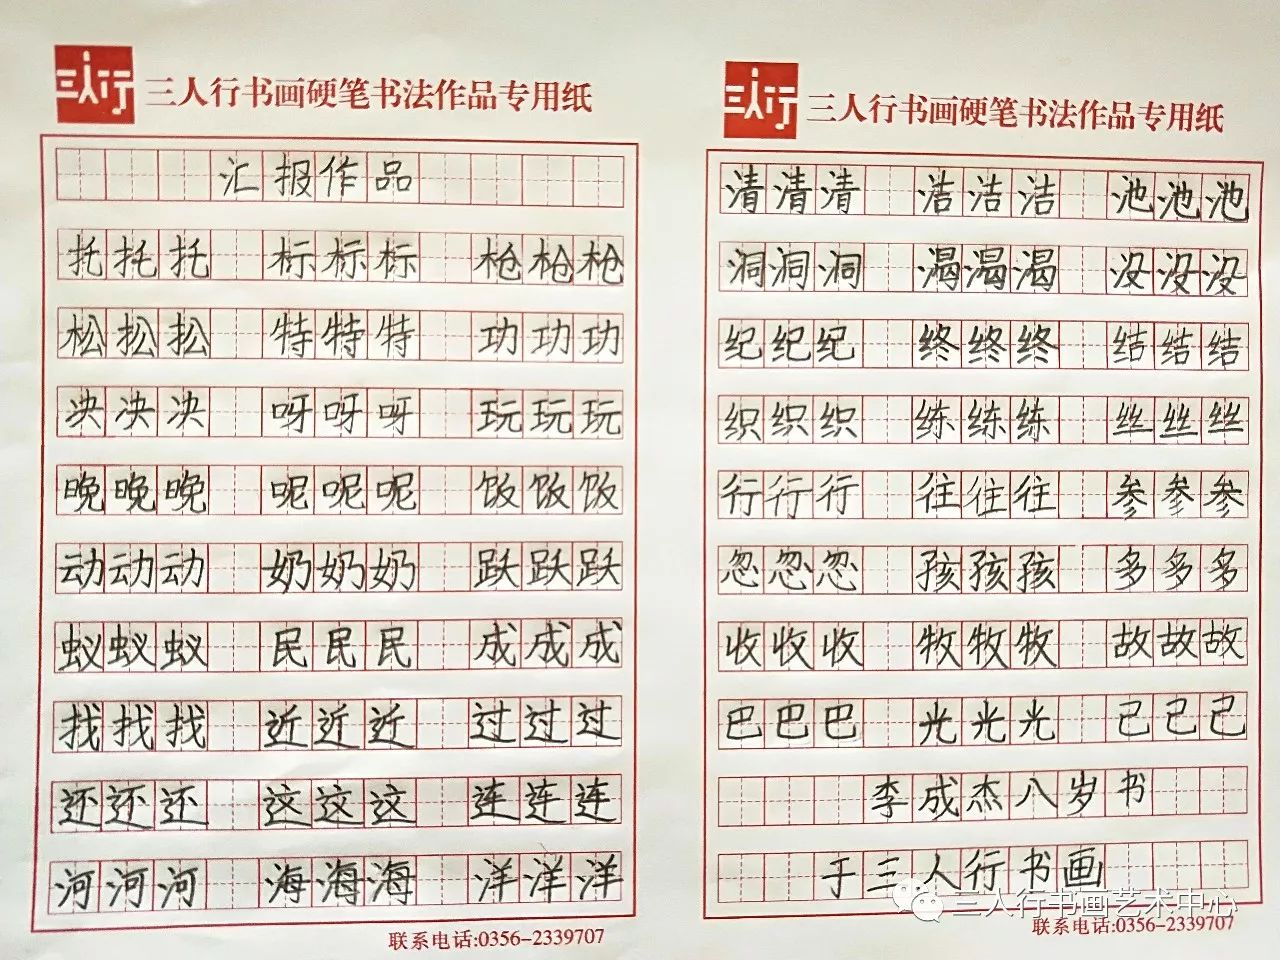 三人行
三人行书画硬笔书法作品专用纸
汇报作品
托托托 标标标 枪枪枪
松松松 特特特 功功功
决决决 呀呀呀 玩玩玩
晚晚晚 呢呢呢 饭饭饭
动动动 奶奶奶 跃跃跃
蚁蚁蚁 民民民 成成成
找找找 近近近 过过过
还还还 这这这 连连连
河河河 海海海 洋洋洋
联系电话:0356-2339707
三人行
三人行书画硬笔书法作品专用纸
清清清 洁洁洁 池池池
洞洞洞 渴渴渴 没没没
纪纪纪 终终终 结结结
织织织 练练练 丝丝丝
行行行 往往往 参参参
忽忽忽 孩孩孩 多多多
收收收 牧牧牧 故故故
巴巴巴 光光光 己己己
李成杰八岁书
于三人行书画
三人行书画艺术中心
联系电话:0356-2339707